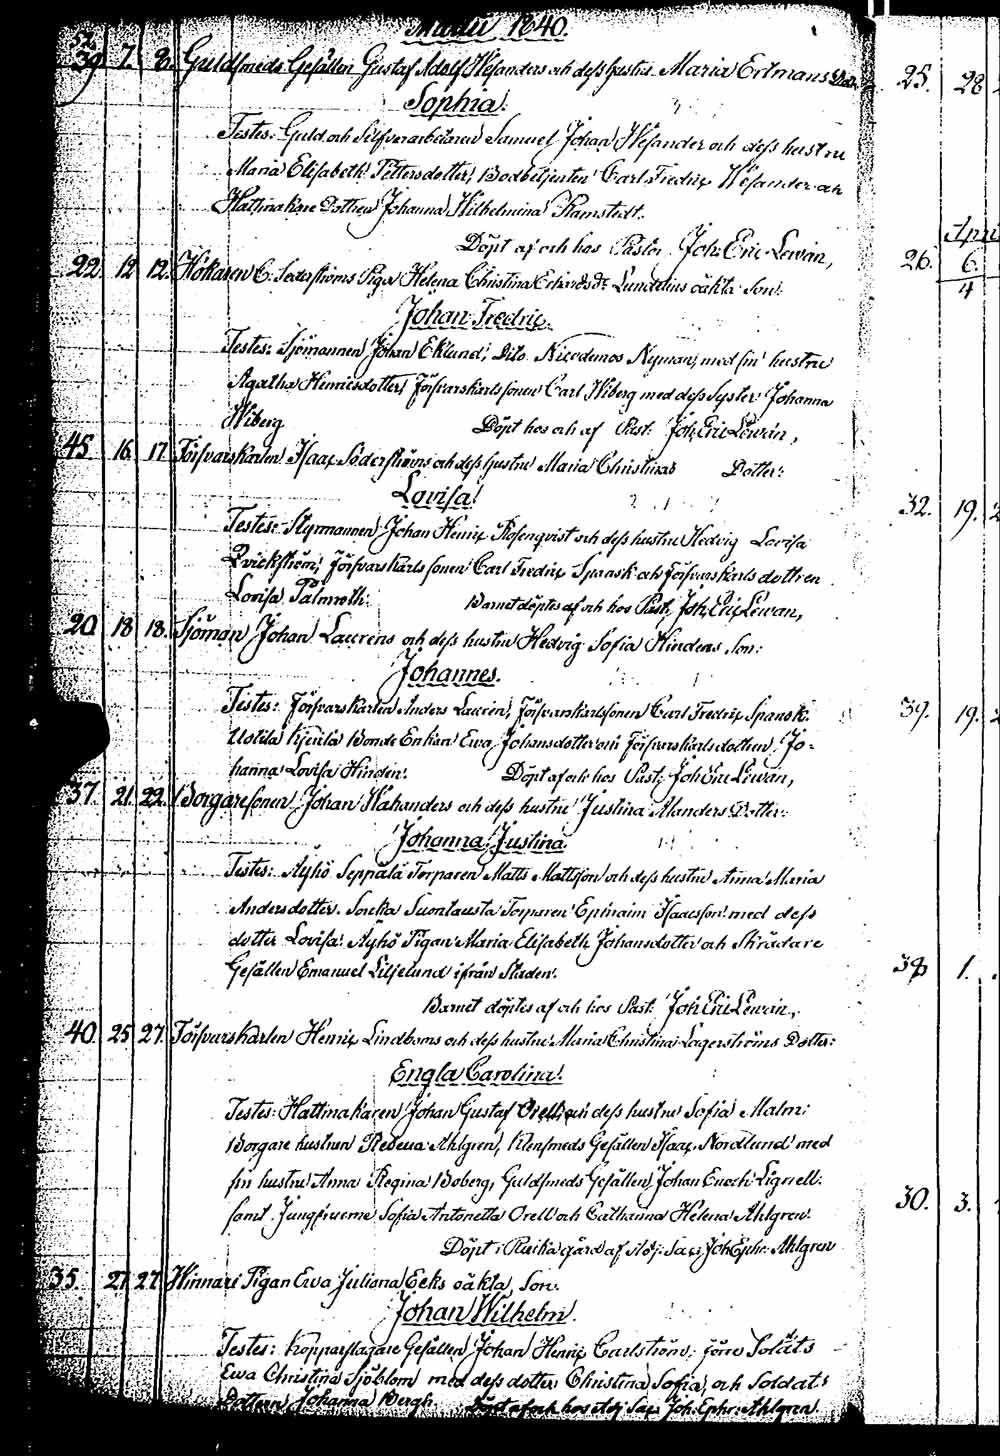 1840.
39 7. 8. Guldsmeds Gesällen Gustaf Adolf Wesanders och dess hustru Maria Ertmans Dotter
Sophia.
Testes: Guld och Silfverarbetaren Samuel Johan Wesander och dess hustru
Maria Elisabeth Pettersdotter, Bodbetjenten Carl Fredric Wesander och
Hattmakare Dottren Johanna Wilhelmina Ramstedt.
Döpt af och hos Pastor Joh: Eric Lewan,
22. 12 12. Hökaren C. Söderströms Piga Helena Christina Lundelins oäkta Son:
Johan Fredric.
Testes: Sjömannen Johan Eklund, Dito Nicodemos Nyman, med sin hustru
Agatha Henricsdotter, Försvarskarlssonen Carl Wiberg med dess Syster Johanna
Wiberg Döpt hos och af Past: Joh: Eric Lewan,
45 16 17 Försvarskarlen Isaac Söderströms och dess hustru Maria Christinas Dotter:
Lovisa!
Testes: Styrmannen Johan Henric Rosenqvist och dess hustru Hedvig Lovisa
Qvickström, Försvarskarls sonen Carl Fredric Spansk och Försvarskarls dottren
Lovisa Palmroth: Barnet döptes af och hos Past: Joh: Eric Lewan,
20 18 18. Sjöman Johan Laurens och dess hustru Hedvig Sofia Hindens Son:
Johannes.
Testes: Försvarskarlen Anders Lauren, Försvarskarlssonen Carl Fredric Spansk.
Uotila Bonde Enkan Ewa Johansdotter och Försvarskarls dottren Jo-
hanna Lovisa Hinden: Döpt af och hos Past: Joh: Eric Lewan,
37. 21 22. Borgaresonen Johan Wahanders och dess hustru Justina Alanders Dotter:
Johanna Justina
Testes: Äyhö Seppälä Torparen Matts Mattsson och dess hustru Anna Maria
Andersdotter. Torparen Ephraim Isaacsson med dess
dotter Lovisa. Äyhö Pigan Maria Elisabeth Johansdotter och Skrädare
Gesällen Emanuel Liljelund ifrån Staden.
Barnet döptes af och hos Past: Joh: Eric Lewan,
40. 25 27. Försvarskarlen Henric Lindboms och dess hustru Maria Christina Lagerströms Dotter:
Engla Carolina!
Testes: Hattmakaren Johan Gustaf Orell och dess hustru Sofia Malm:
Borgare hustrun Rebecca Ahlgren, Klensmeds Gesällen Isaac Nordlund med
sin hustru Anna Regina Boberg, Guldsmeds Gesällen Johan Enoch Lignell.
samt Jungfruerne Sofia Antonetta Orell och Catharina Helena Ahlgren.
Döpt i gård af Adj: Sac: Joh: Ephr: Ahlgren
35. 27 27. Hinnari Pigan Ewa Juliana Eeks oäkta Son:
Johan Wilhelm.
Testes: Kopparslagare Gesällen Johan Henric Carlström, förre Soldats
Ewa Christina Sjöblom med dess dotter Christina Sofia, och Soldats
Dottern Johanna Bergh. Döpt af och hos Adj: Sac: Joh: Ephr: Ahlgren.
25. 28
April
26. 6.
4
32. 19.
39. 19.
38 1.
30. 3.